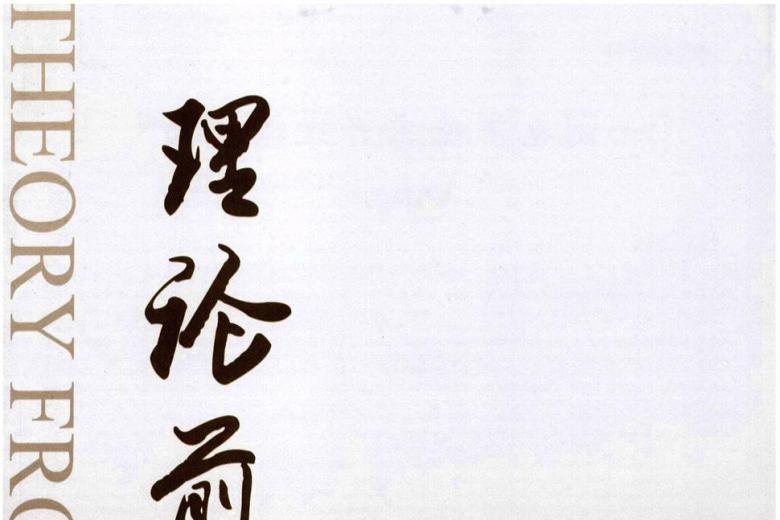 THEORY FRO
理论前